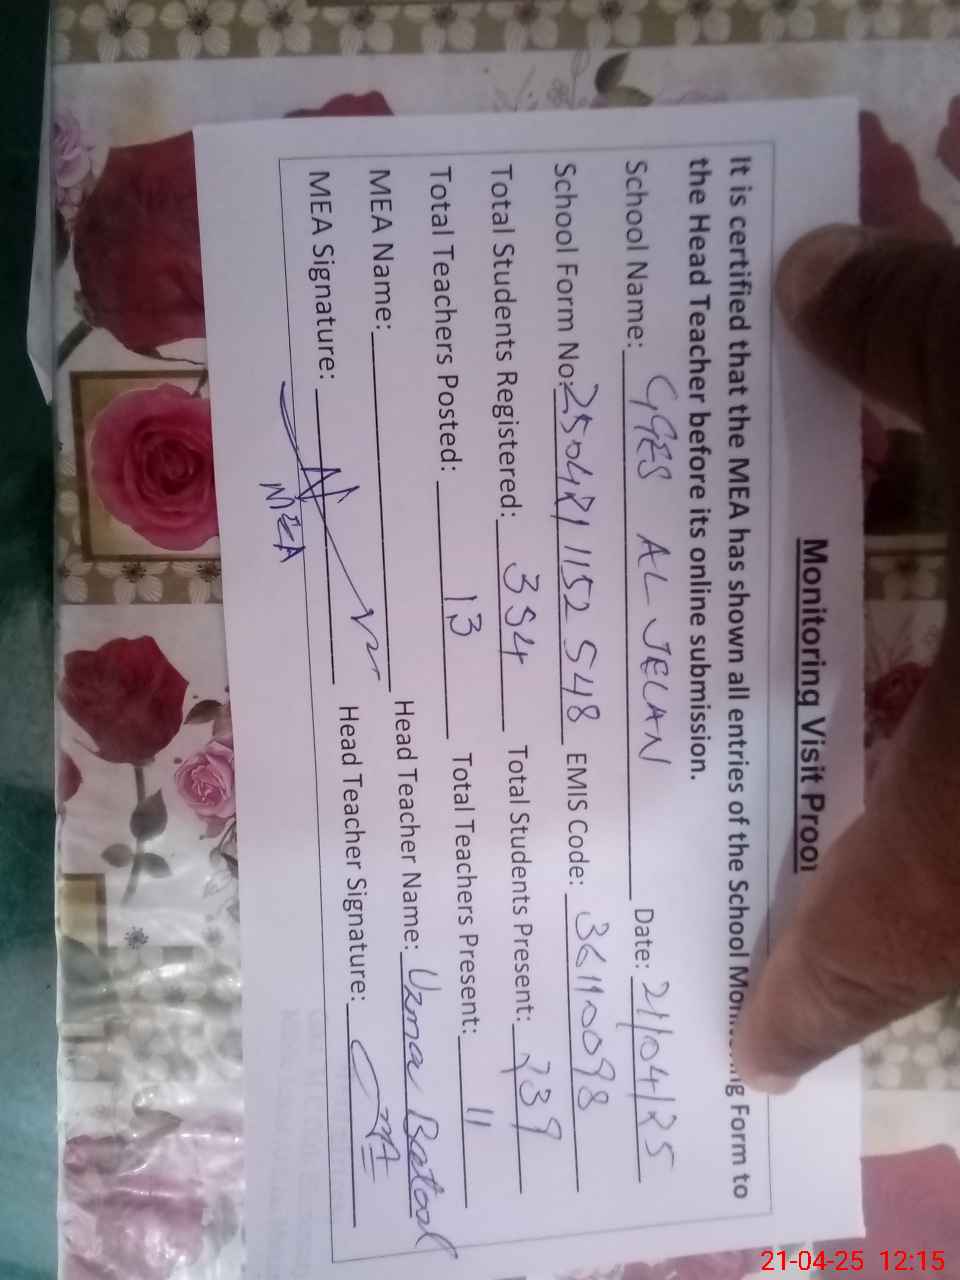 Monitoring Visit Proof
It is certified that the MEA has shown all entries of the School Monitoring Form to
the Head Teacher before its online submission.
School Name: GGES AL JELAN Date: 21/04/25
School Form No: 2504211152548 EMIS Code: 36110098
Total Students Registered: 354 Total Students Present: 239
Total Teachers Posted: 13 Total Teachers Present: 11
MEA Name: Head Teacher Name: Uzma Batool
MEA Signature: Head Teacher Signature:
MEA
21-04-25 12:15